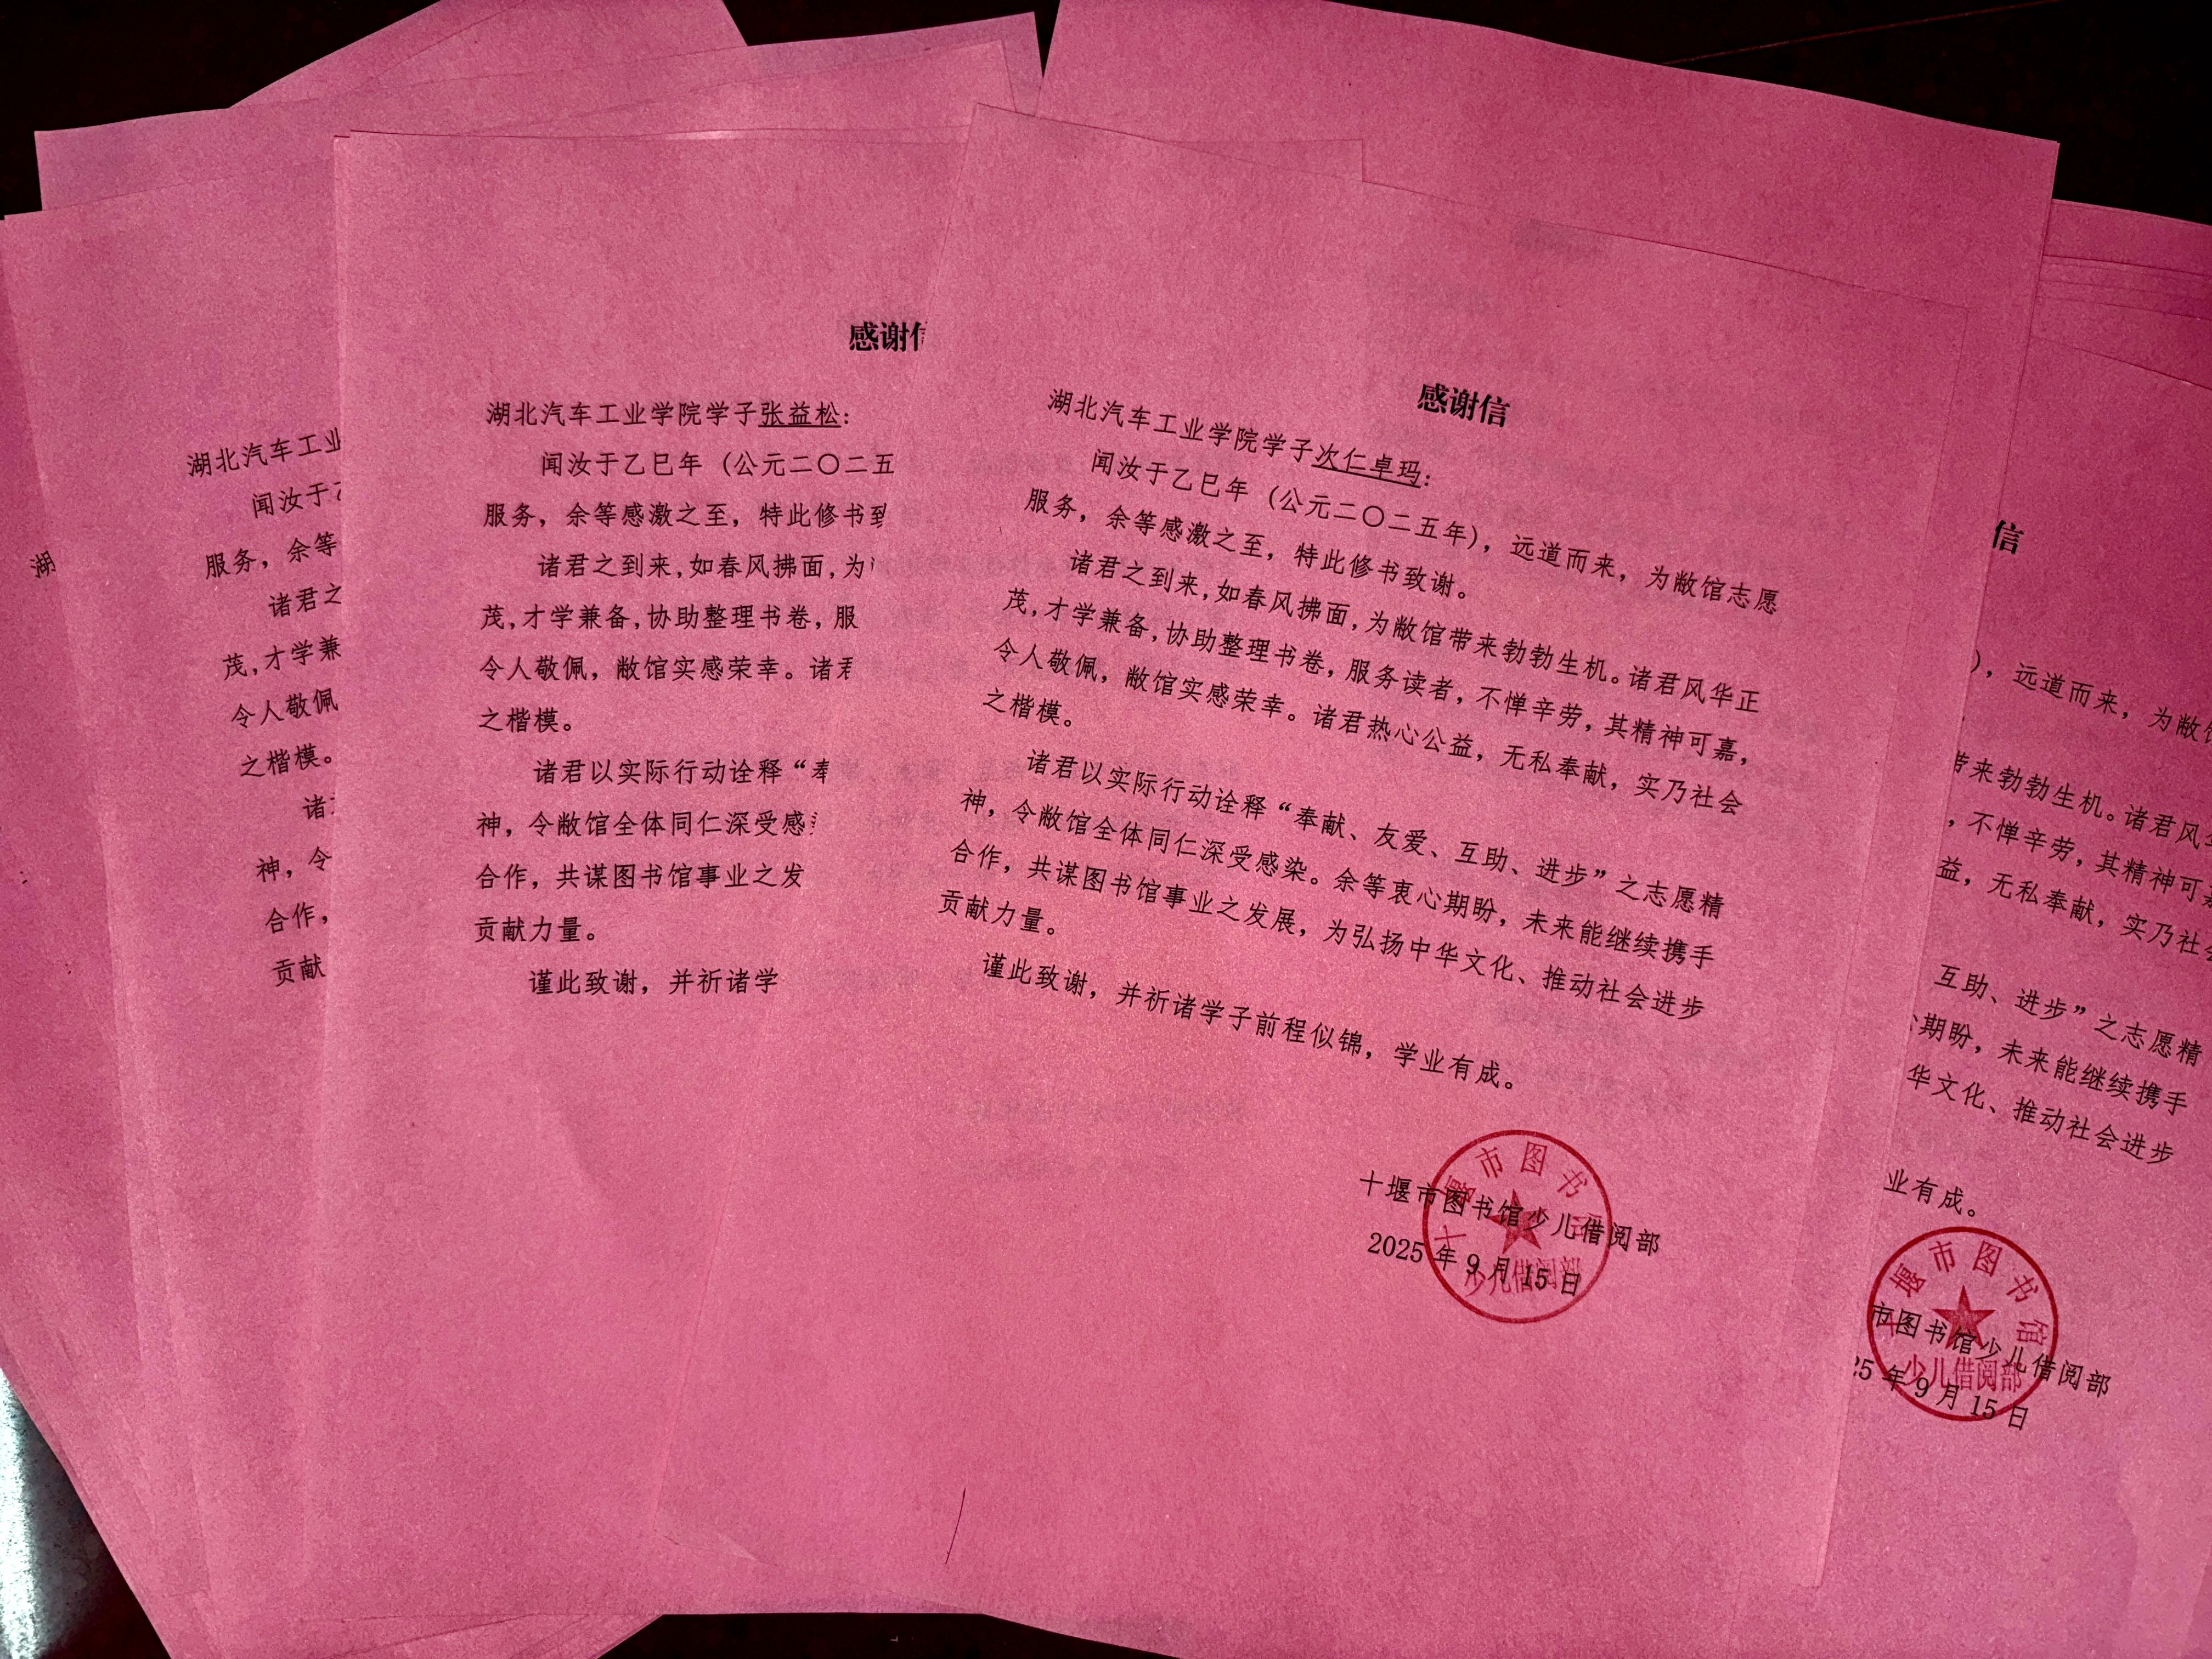 湖
湖北汽车工业
闻汝于
服务，余等
诸君之
茂,才学兼
令人敬佩
之楷模。
诸
神，令
合作，
贡献
感谢
湖北汽车工业学院学子张益松：
闻汝于乙巳年（公元二〇二五
服务，余等感激之至，特此修书
诸君之到来,如春风拂面,为
茂,才学兼备,协助整理书卷，服
令人敬佩，敝馆实感荣幸。诸
之楷模。
诸君以实际行动诠释“奉
神，令敝馆全体同仁深受感
合作，共谋图书馆事业之发
贡献力量。
谨此致谢，并祈诸学
感谢信
湖北汽车工业学院学子次仁卓玛：
闻汝于乙巳年（公元二〇二五年），远道而来，为敝馆志愿
服务，余等感激之至，特此修书致谢。
诸君之到来,如春风拂面,为敝馆带来勃勃生机。诸君风华正
茂,才学兼备,协助整理书卷，服务读者，不惮辛劳，其精神可嘉，
令人敬佩，敝馆实感荣幸。诸君热心公益，无私奉献，实乃社会
之楷模。
诸君以实际行动诠释“奉献、友爱、互助、进步”之志愿精
神，令敝馆全体同仁深受感染。余等衷心期盼，未来能继续携手
合作，共谋图书馆事业之发展，为弘扬中华文化、推动社会进步
贡献力量。
谨此致谢，并祈诸学子前程似锦，学业有成。
十堰市图书馆少儿借阅部
2025年9月15日
十堰市图书馆
少儿借阅部
信
），远道而来，为敝
带来勃勃生机。诸君风
，不惮辛劳，其精神可
益，无私奉献，实乃社
互助、进步”之志愿精
期盼，未来能继续携手
华文化、推动社会进步
业有成。
市图书馆少儿借阅部
25年9月15日
十堰市图书馆
少儿借阅部